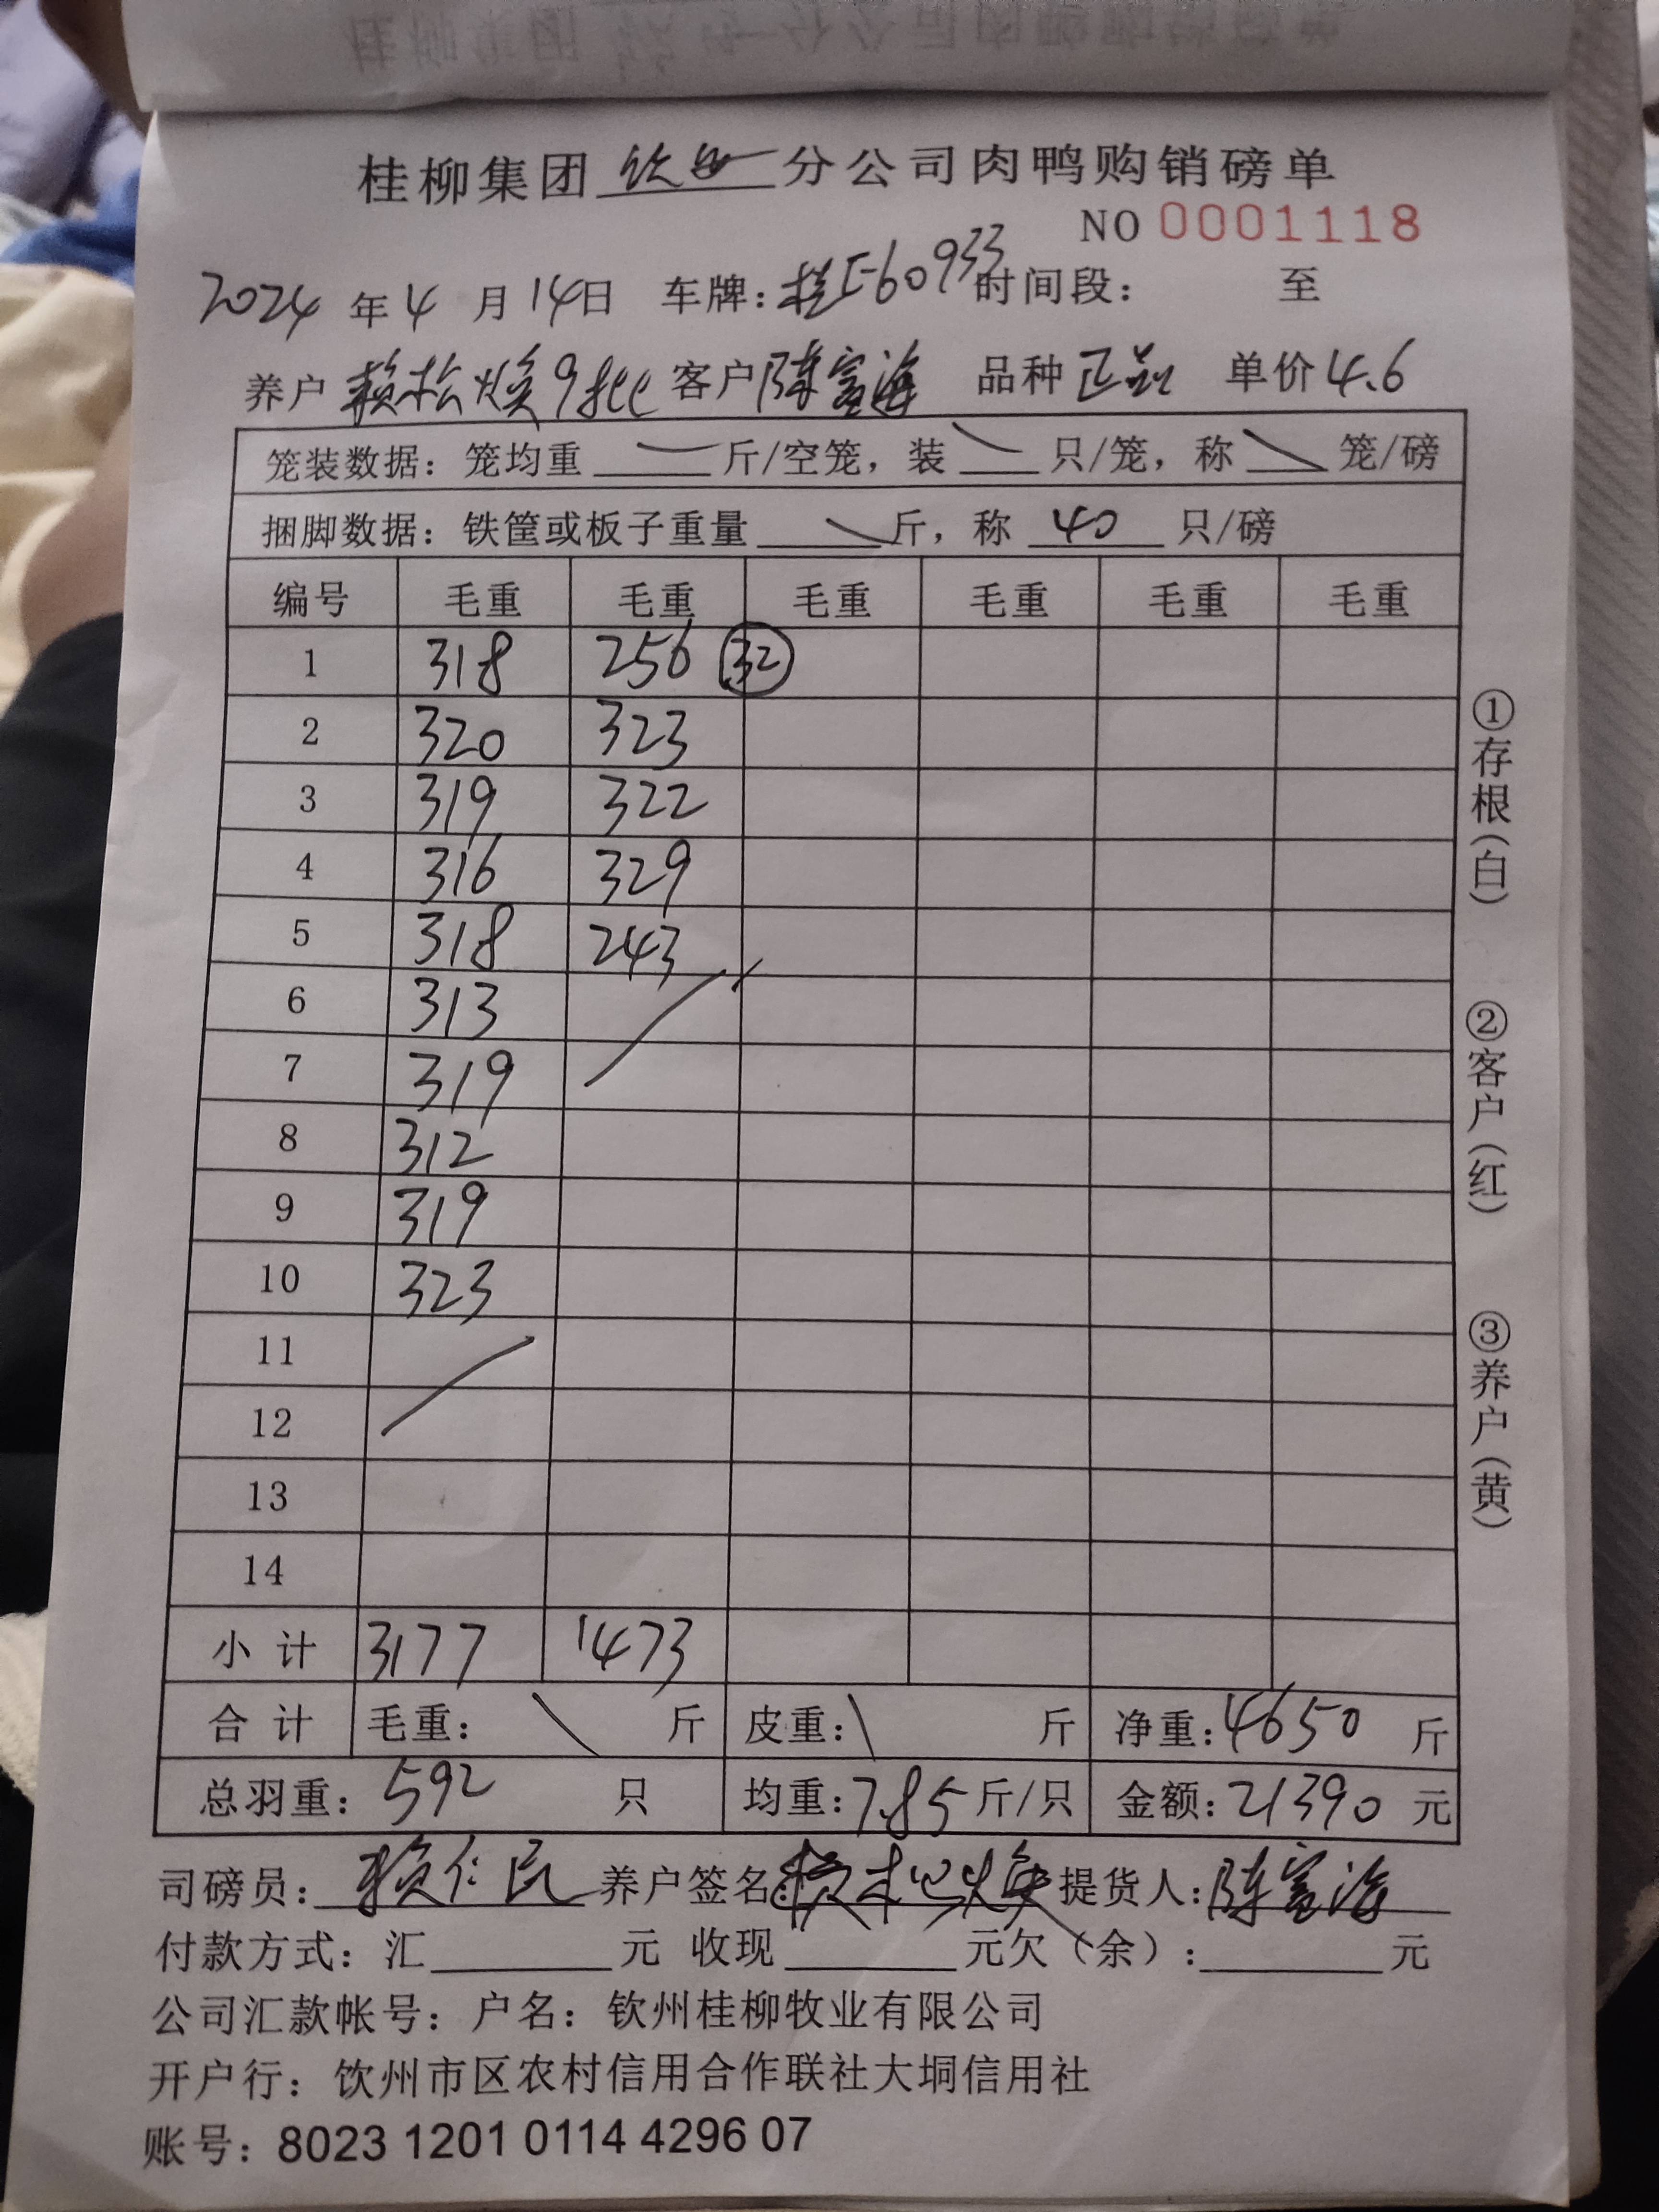 桂柳集团 钦州 分公司肉鸭购销磅单
NO 0001118
2024 年 4 月 14日 车牌: 桂E60933 时间段: 至
养户 赖松焕9批 客户 陈富海 品种 正品 单价 4.6
笼装数据: 笼均重 斤/空笼, 装 只/笼, 称 笼/磅
捆脚数据: 铁筐或板子重量 斤, 称 40 只/磅
编号 毛重 毛重 毛重 毛重 毛重 毛重
1 318 256 32
2 320 323
3 319 322
4 316 329
5 318 243
6 313
7 319
8 312
9 319
10 323
11
12
13
14
小计 3177 1473
合计 毛重: 斤 皮重: 斤 净重: 4650 斤
总羽重: 592 只 均重: 7.85 斤/只 金额: 21390 元
司磅员: 赖仁民 养户签名: 赖松焕 提货人: 陈富海
付款方式: 汇 元 收现 元欠(余): 元
公司汇款帐号: 户名: 钦州桂柳牧业有限公司
开户行: 钦州市区农村信用合作联社大垌信用社
账号: 8023 1201 0114 4296 07
①存根(白)
②客户(红)
③养户(黄)